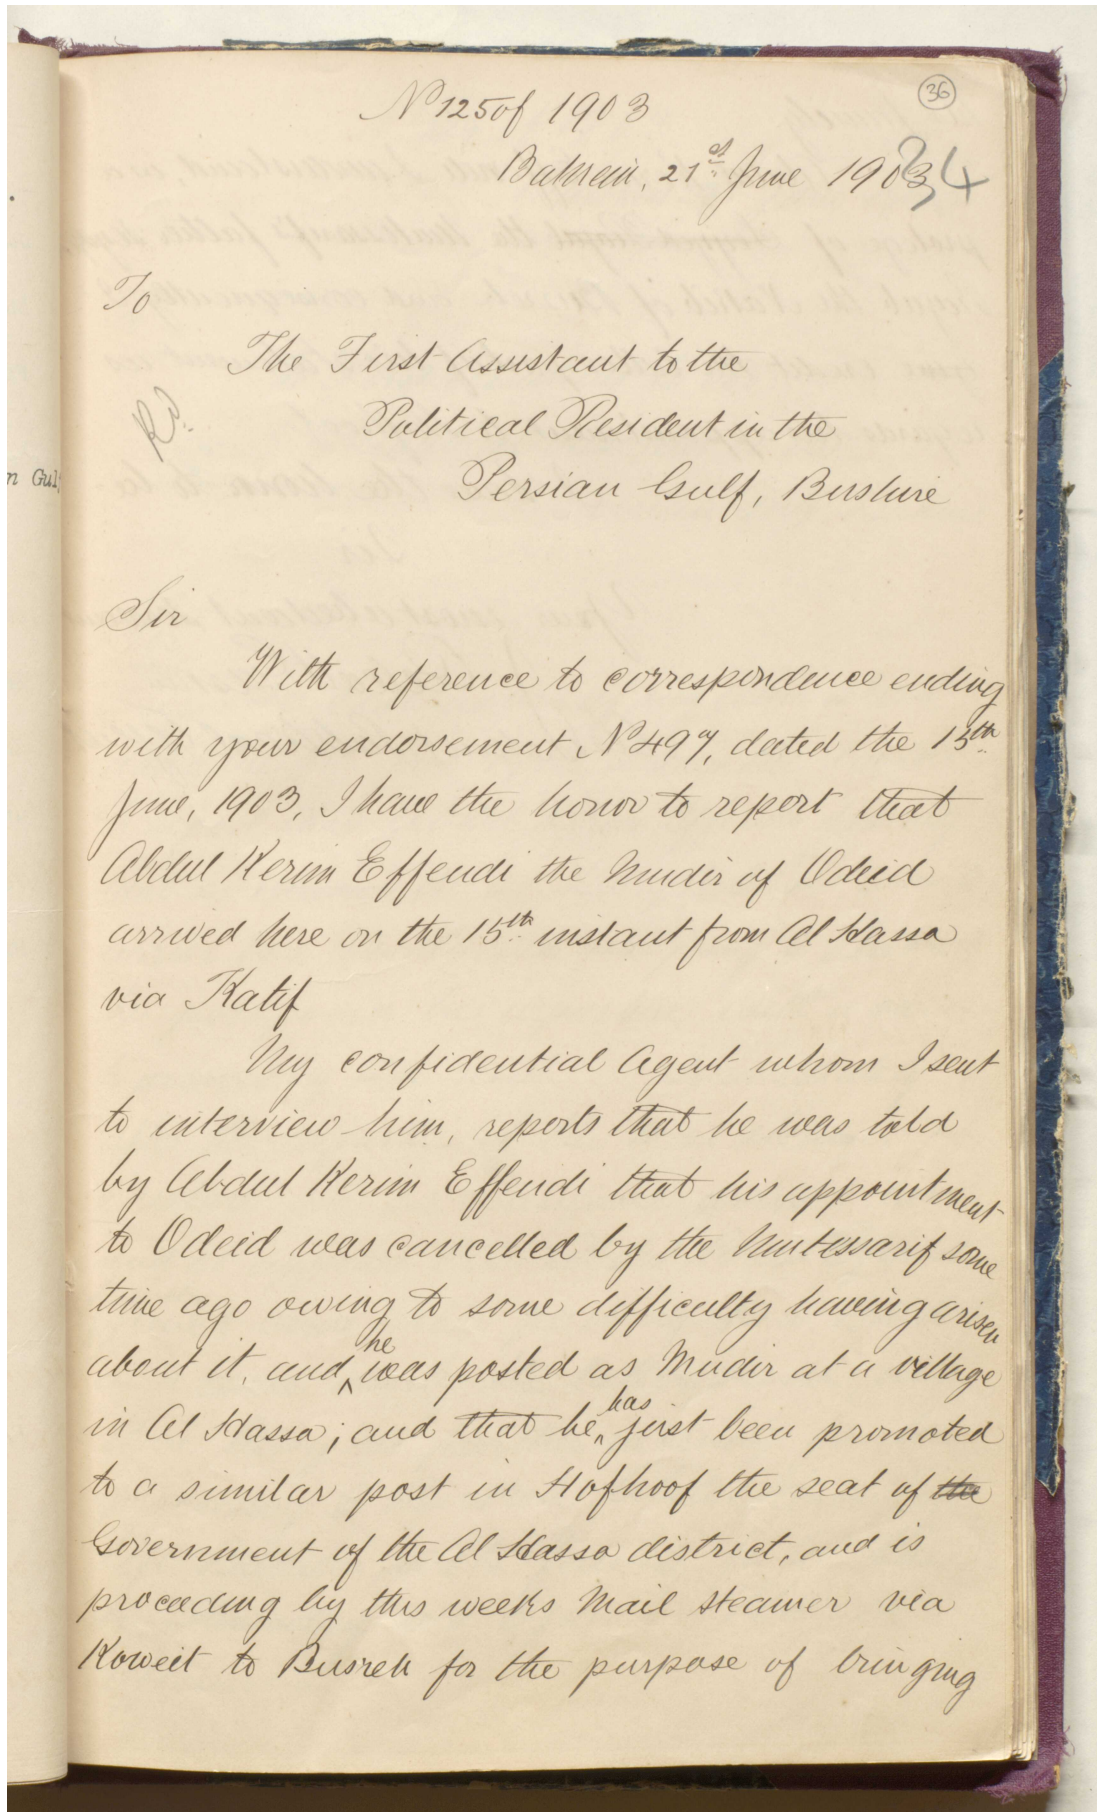 36
Nº 125 of 1903
Bahrein, 21st June 1903
34
To
The First Assistant to the
Political Resident in the
Persian Gulf, Bushire
n Gul
Sir
With reference to correspondence ending
with your endorsement Nº 497, dated the 13th
June, 1903, I have the honor to report that
Abdul Kerim Effendi the Mudir of Odeid
arrived here on the 15th instant from Al Hassa
via Katif
My confidential Agent whom I sent
to interview him, reports that he was told
by Abdul Kerim Effendi that his appointment
to Odeid was cancelled by the Mutessarif some
time ago owing to some difficulty having arisen
about it, and he was posted as Mudir at a village
in Al Hassa; and that he has just been promoted
to a similar post in Hofhoof the seat of the
Government of the Al Hassa district, and is
proceeding by this weeks Mail steamer via
Koweit to Busreh for the purpose of bringing